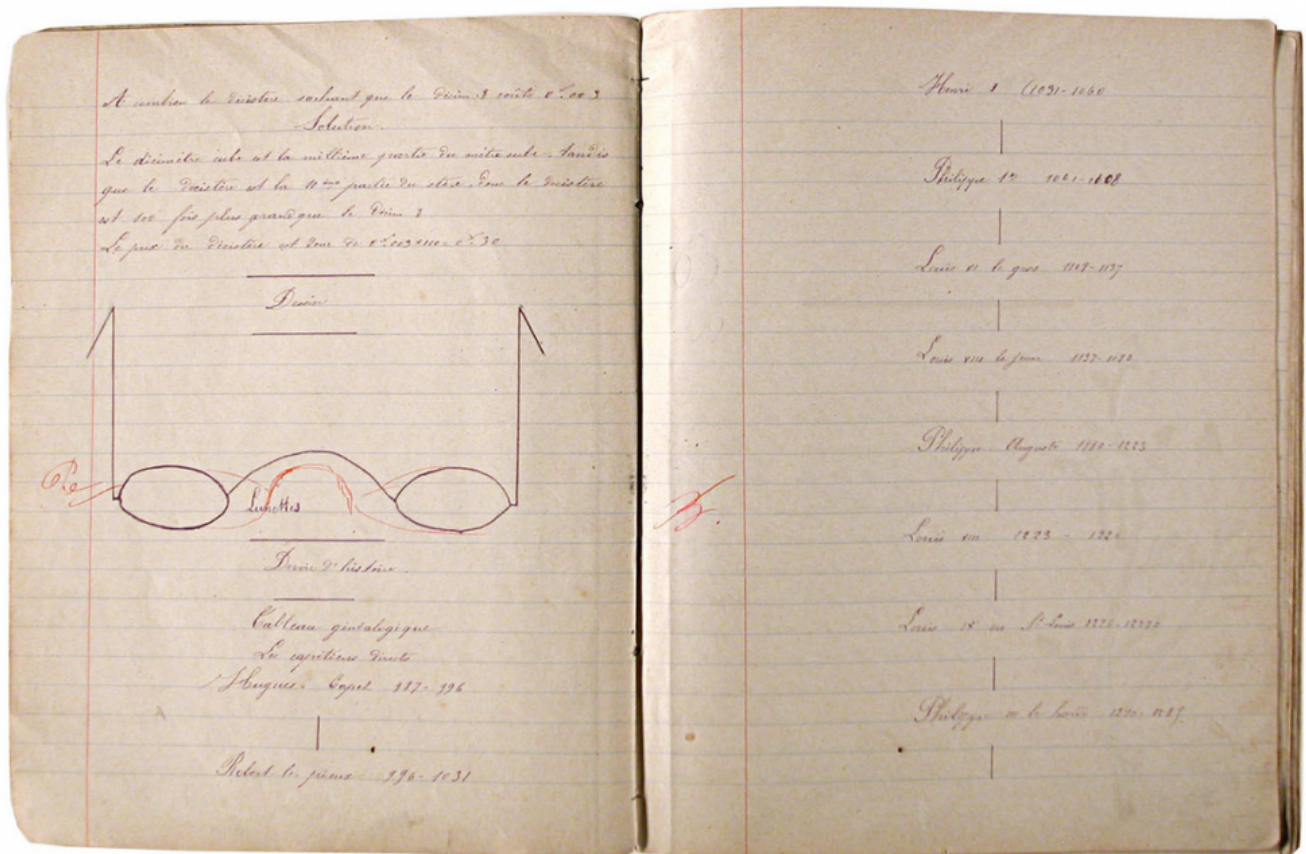 A combien le décistère sachant que le décim. 3 coûte 0f.003
Solution.
Le décimètre cube est la millième partie du mètre cube. tandis
que le décistère est la 10ème partie du stère. donc le décistère
est 100 fois plus grand que le décim 3
Le prix du décistère est donc de 0f.003×100=0f.30
Dessin
Lunettes
Devoir d'histoire.
Tableau généalogique
Les capétiens directs
Hugues. Capet 987-996
Robert le pieux 996-1031
Henri 1 (1031-1060
Philippe 1er 1061-1108
Louis VI le gros 1108-1137
Louis VII le jeune 1137-1180
Philippe Auguste 1180-1223
Louis VIII 1223-1226
Louis IX ou St Louis 1226-12270
Philippe III le hardi 1270-1285